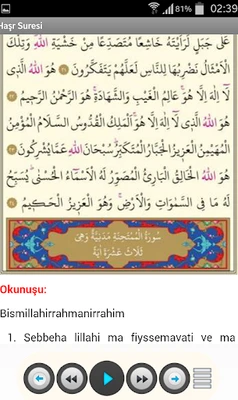 02:39
Haşr Suresi
عَلَى جَبَلٍ لَرَاَيْتَهُ خَاشِعًا مُتَصَدِّعًا مِنْ خَشْيَةِ اللّٰهِ وَتِلْكَ
الْاَمْثَالُ نَضْرِبُهَا لِلنَّاسِ لَعَلَّهُمْ يَتَفَكَّرُونَ ﴿٢١﴾ هُوَ اللّٰهُ الَّذِى
لَا اِلٰهَ اِلَّا هُوَ عَالِمُ الْغَيْبِ وَالشَّهَادَةِ هُوَ الرَّحْمٰنُ الرَّحِيمُ ﴿٢٢﴾
هُوَ اللّٰهُ الَّذِى لَا اِلٰهَ اِلَّا هُوَ اَلْمَلِكُ الْقُدُّوسُ السَّلَامُ الْمُؤْمِنُ
الْمُهَيْمِنُ الْعَزِيزُ الْجَبَّارُ الْمُتَكَبِّرُ سُبْحَانَ اللّٰهِ عَمَّا يُشْرِكُونَ ﴿٢٣﴾
هُوَ اللّٰهُ الْخَالِقُ الْبَارِئُ الْمُصَوِّرُ لَهُ الْاَسْمَاءُ الْحُسْنٰى يُسَبِّحُ
لَهُ مَا فِى السَّمٰوَاتِ وَالْاَرْضِ وَهُوَ الْعَزِيزُ الْحَكِيمُ ﴿٢٤﴾
سُورَةُ الْمُمْتَحِنَةِ مَدَنِيَّةٌ وَهِىَ
ثَلَاثَ عَشْرَةَ اٰيَةً
Okunuşu:
Bismillahirrahmanirrahim
1. Sebbeha lillahi ma fiyssemavati ve ma